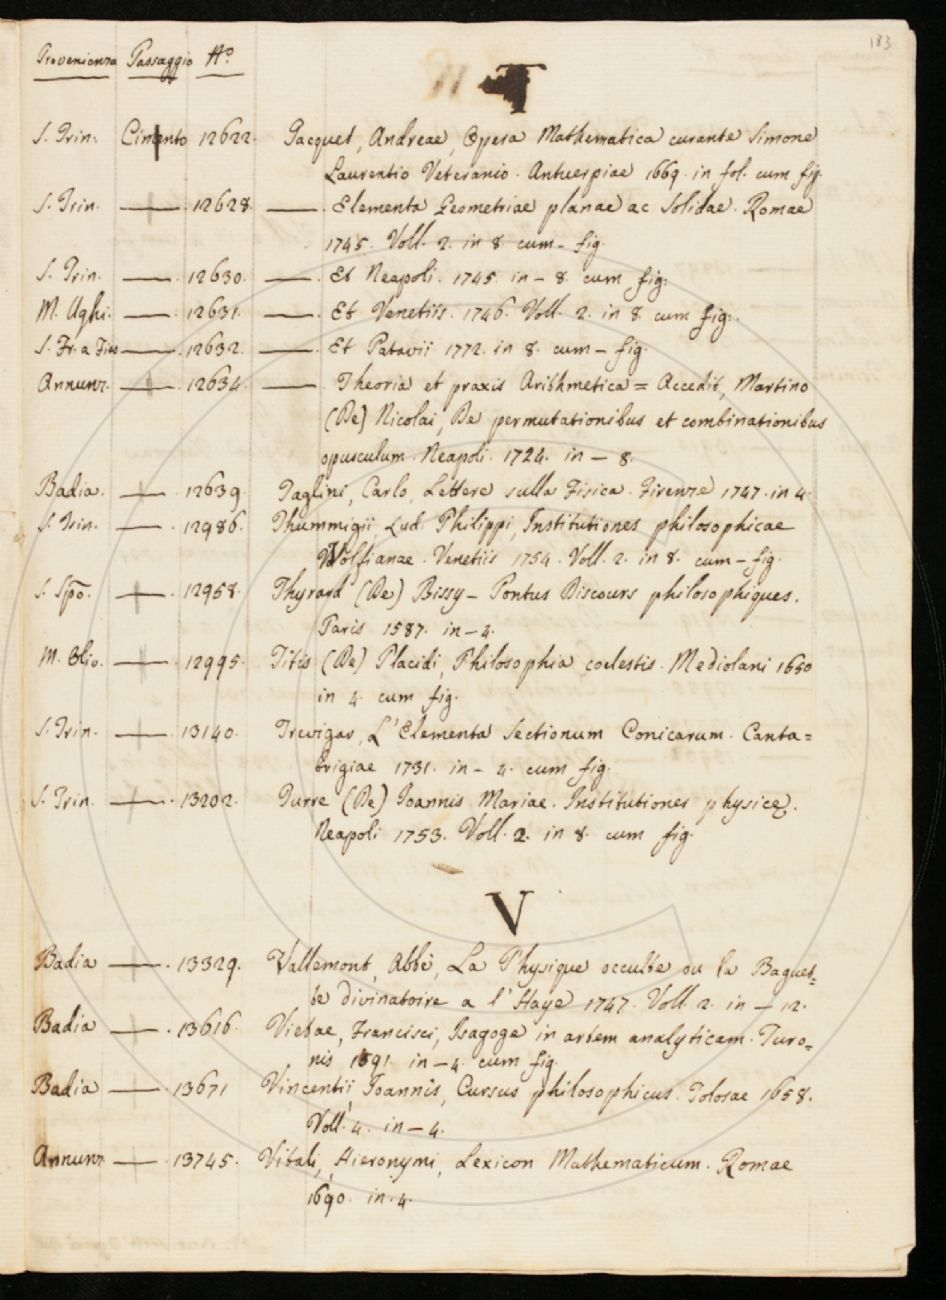 183
Provenienza Passaggio N.º
T
S. Trin. Cimento 12622. Tacquet, Andreae, Opera Mathematica curante Simone
Laurentio Veteranio. Antuerpiae 1669. in fol. cum fig.
S. Trin. —— 12628. —— Elementa Geometriae planae ac Solidae. Romae
1745. Voll. 2. in 8. cum – fig.
S. Trin. —— 12630. —— Et Neapoli. 1745. in – 8. cum fig.
M. Ughi. —— 12631. —— Et Venetiis. 1746. Voll. 2. in 8. cum fig.
S. Fr. a —— 12632. —— Et Patavii 1772. in 8. cum – fig.
Annunz. —— 12634. —— Theoria et praxis Arithmetica = Accedit, Martino
(De) Nicolai, De permutationibus et combinationibus
opusculum. Neapoli. 1724. in – 8.
Badia. —— 12639. Taglini, Carlo, Lettere sulla Fisica. Firenze 1747. in 4.
S. Trin. —— 12986. Thummigii, Lud. Philippi, Institutiones philosophicae
Wolfianae. Venetiis 1754. Voll. 2. in 8. cum – fig.
S. Spo. —— 12958. Thyrard (De) Bissy – Pontus Discours philosophiques.
Paris 1587. in – 4.
M. Oliv. —— 12995. Titis (De) Placidi, Philosophia coelestis. Mediolani 1650
in 4. cum fig.
S. Trin. —— 13140. Trevigar, L' Elementa Sectionum Conicarum. Canta=
brigiae 1731. in – 4. cum fig.
S. Trin. —— 13202. Turre (De) Joannis Mariae. Institutiones physicę.
Neapoli 1753. Voll. 2. in 8. cum fig.
V
Badia —— 13329. Vallemont, Abbé, La Physique occulte ou la Baguet=
te divinatoire a l' Haye 1747. Voll. 2. in – 12.
Badia —— 13616. Vietae, Francisci, Isagoge in artem analyticam. Turo=
nis 1591. in – 4. cum fig.
Badia —— 13671 Vincentii, Joannis, Cursus philosophicus. Tolosae 1658.
Voll. 4. in – 4.
Annunz. —— 13745. Vitali, Hieronymi, Lexicon Mathematicum. Romae
1690. in. 4.